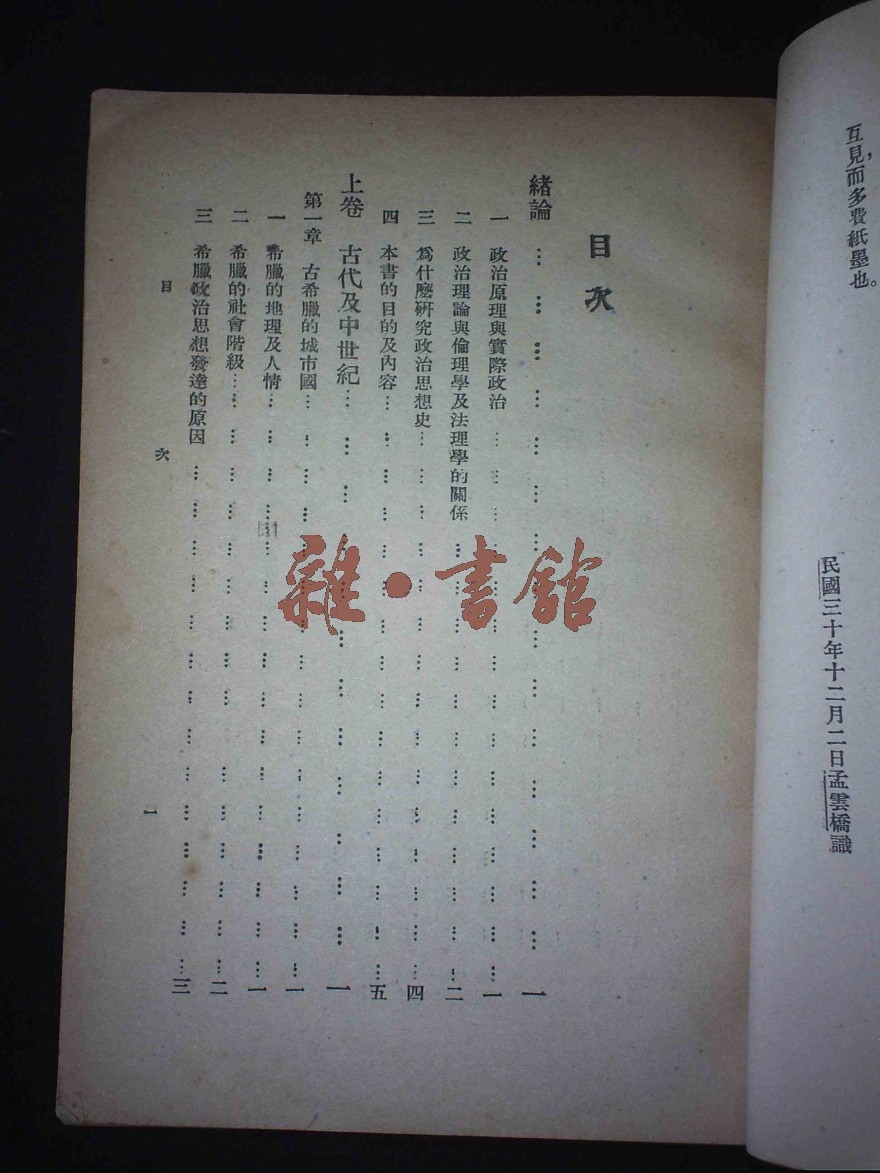 互見而多費紙墨也。
民國三十年十二月二日孟雲橋識
目次
緒論………………………………一
一 政治原理與實際政治………………………………一
二 政治理論與倫理學及法理學的關係………………………………二
三 爲什麽研究政治思想史………………………………四
四 本書的目的及內容………………………………五
上卷 古代及中世紀………………………………一
第一章 古希臘的城市國………………………………一
一 希臘的地理及人情………………………………一
二 希臘的社會階級………………………………二
三 希臘政治思想發達的原因………………………………三
目 次 一
雜·書館